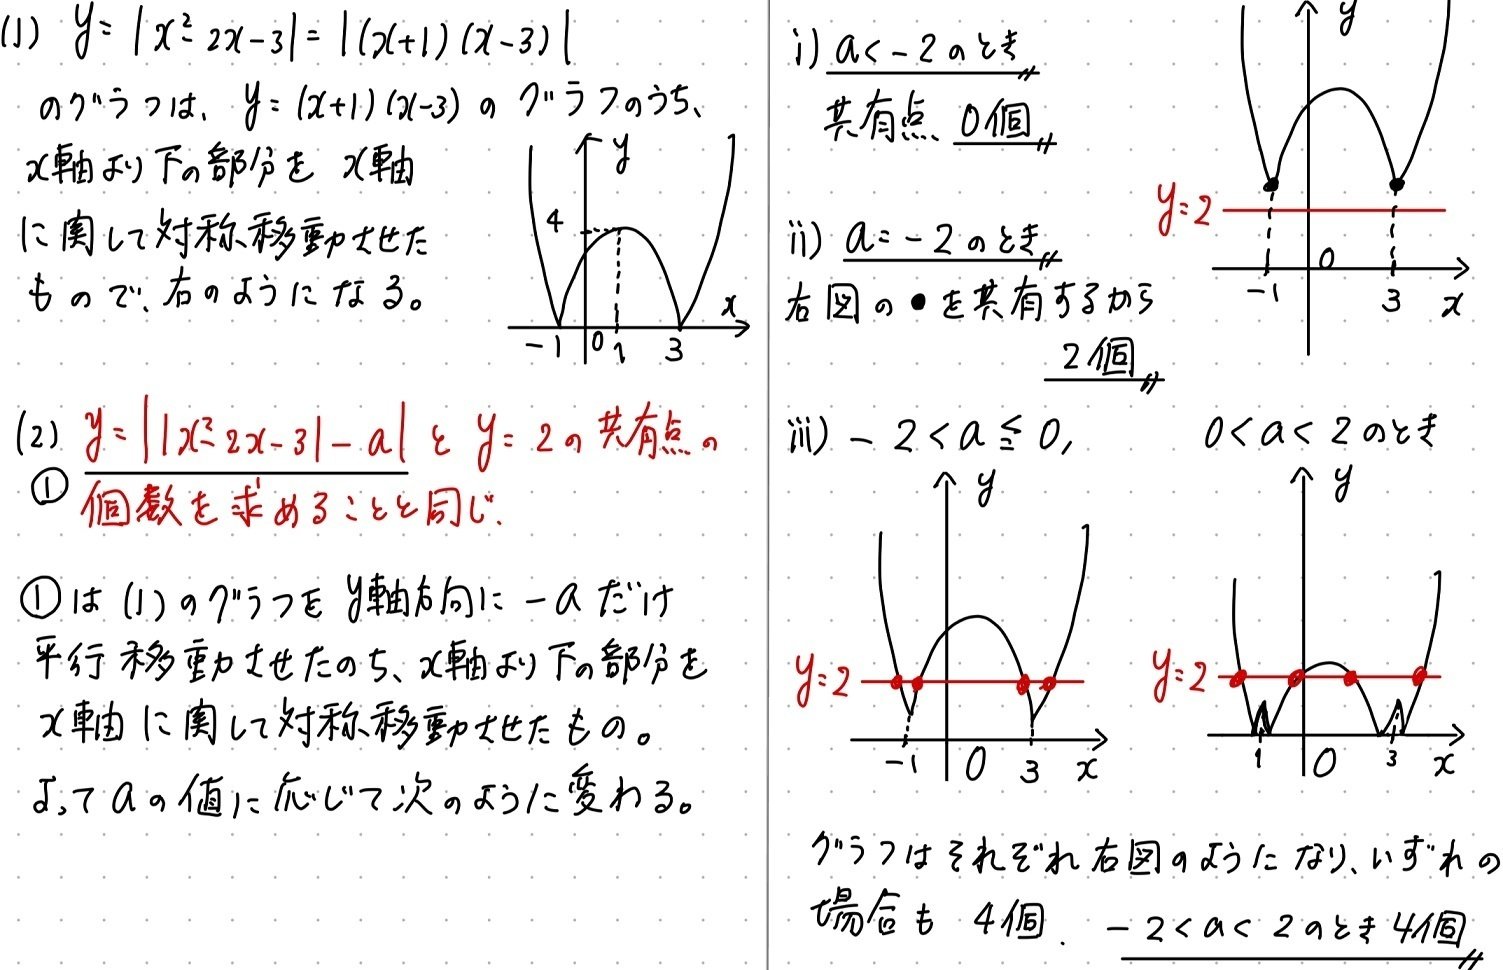 (1) y=|x²-2x-3|=|(x+1)(x-3)|
のグラフは、y=(x+1)(x-3)のグラフのうち、
x軸より下の部分をx軸
に関して対称移動させた
もので、右のようになる。
y
4
x
-1 0 1 3
(2) y=||x²-2x-3|-a| と y=2の共有点の
① 個数を求めることと同じ.
①は(1)のグラフをy軸方向に-aだけ
平行移動させたのち、x軸より下の部分を
x軸に関して対称移動させたもの。
よってaの値に応じて次のように変わる。
i) a<-2のとき
共有点 0個
y
y=2
0
-1 3 x
ii) a=-2のとき
右図の●を共有するから
2個
iii) -2<a≦0, 0<a<2のとき
y
y=2
-1 0 3 x
y
y=2
1 0 3 x
グラフはそれぞれ右図のようになり、いずれの
場合も 4個. -2<a<2のとき4個